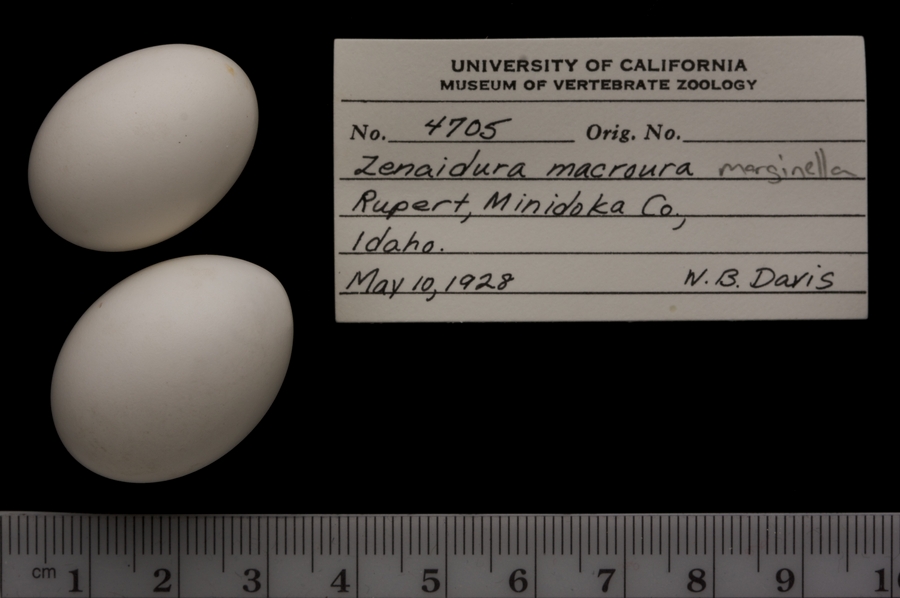 UNIVERSITY OF CALIFORNIA
MUSEUM OF VERTEBRATE ZOOLOGY
No. 4705 Orig. No.
Zenaidura macroura marginella
Rupert, Minidoka Co.,
Idaho.
May 10, 1928 W. B. Davis
cm 1 2 3 4 5 6 7 8 9 1